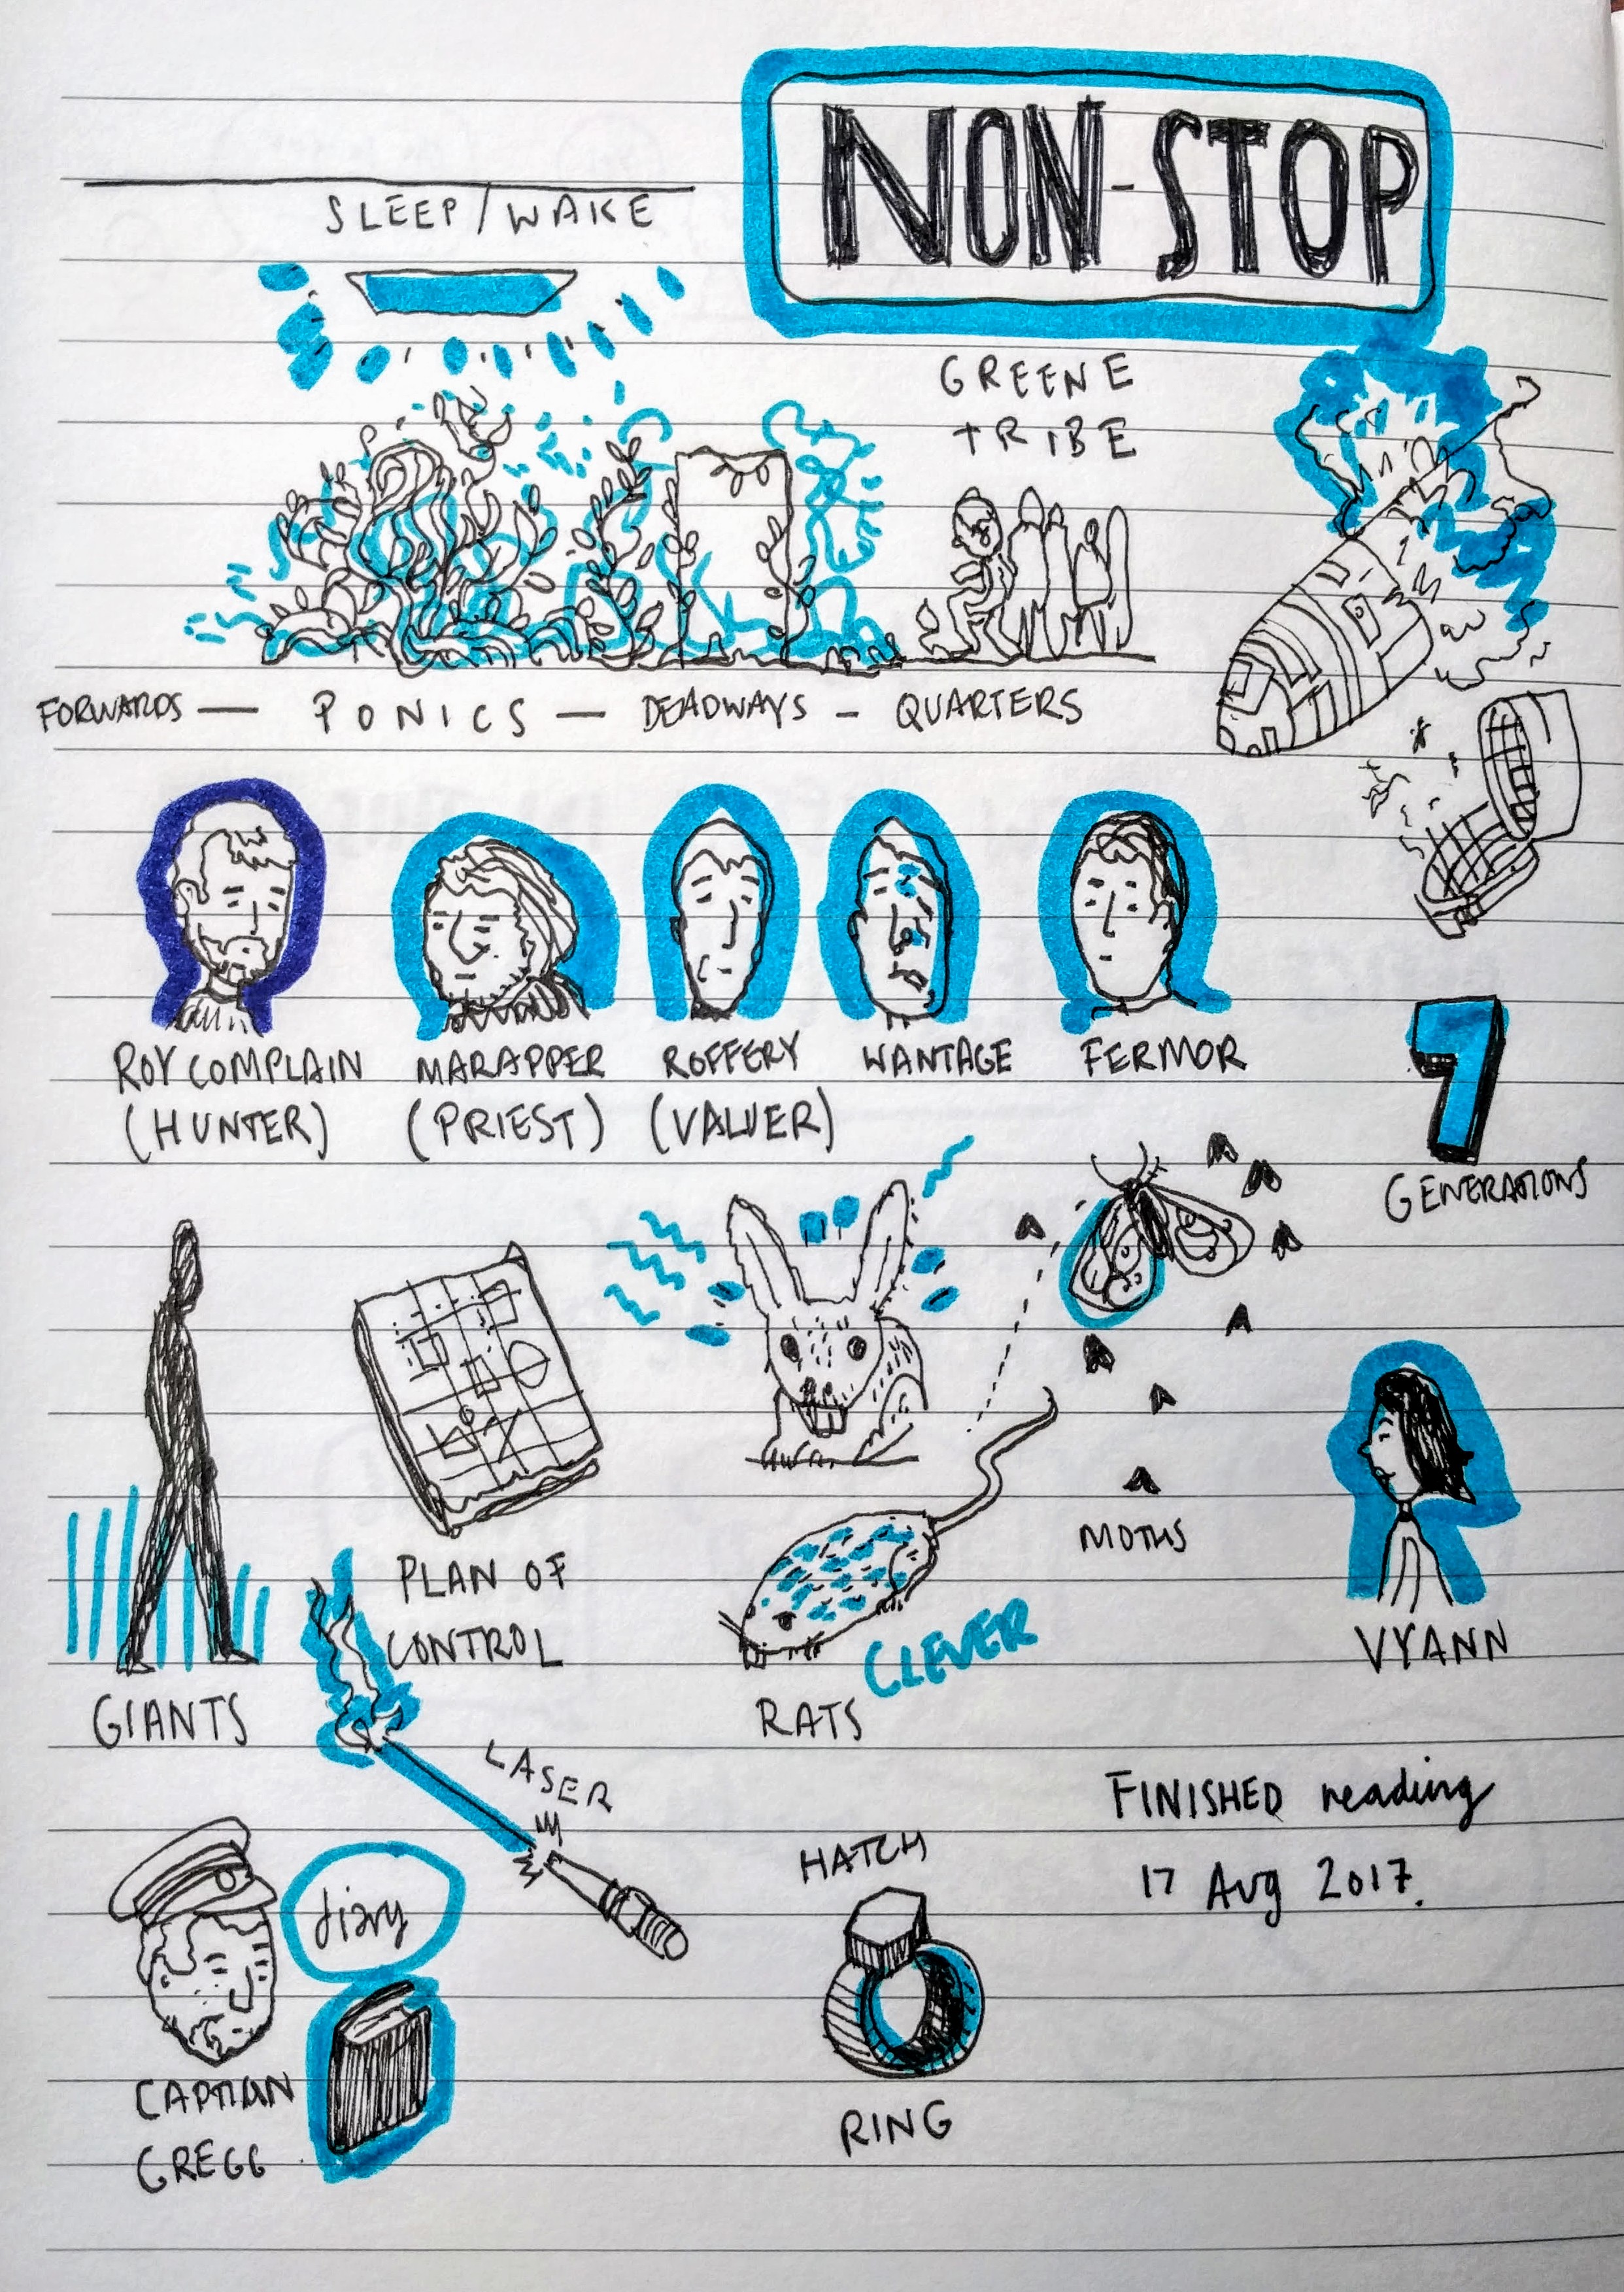 NON-STOP
SLEEP/WAKE
GREENE
TRIBE
FORWARDS — PONICS — DEADWAYS - QUARTERS
ROY COMPLAIN
(HUNTER)
MARAPPER
(PRIEST)
ROFFERY
(VALUER)
WANTAGE
FERMOR
7
GENERATIONS
GIANTS
PLAN OF
CONTROL
CLEVER
RATS
MOTHS
VYANN
LASER
diary
CAPTIAN
GREGG
HATCH
RING
FINISHED reading
17 Aug 2017.